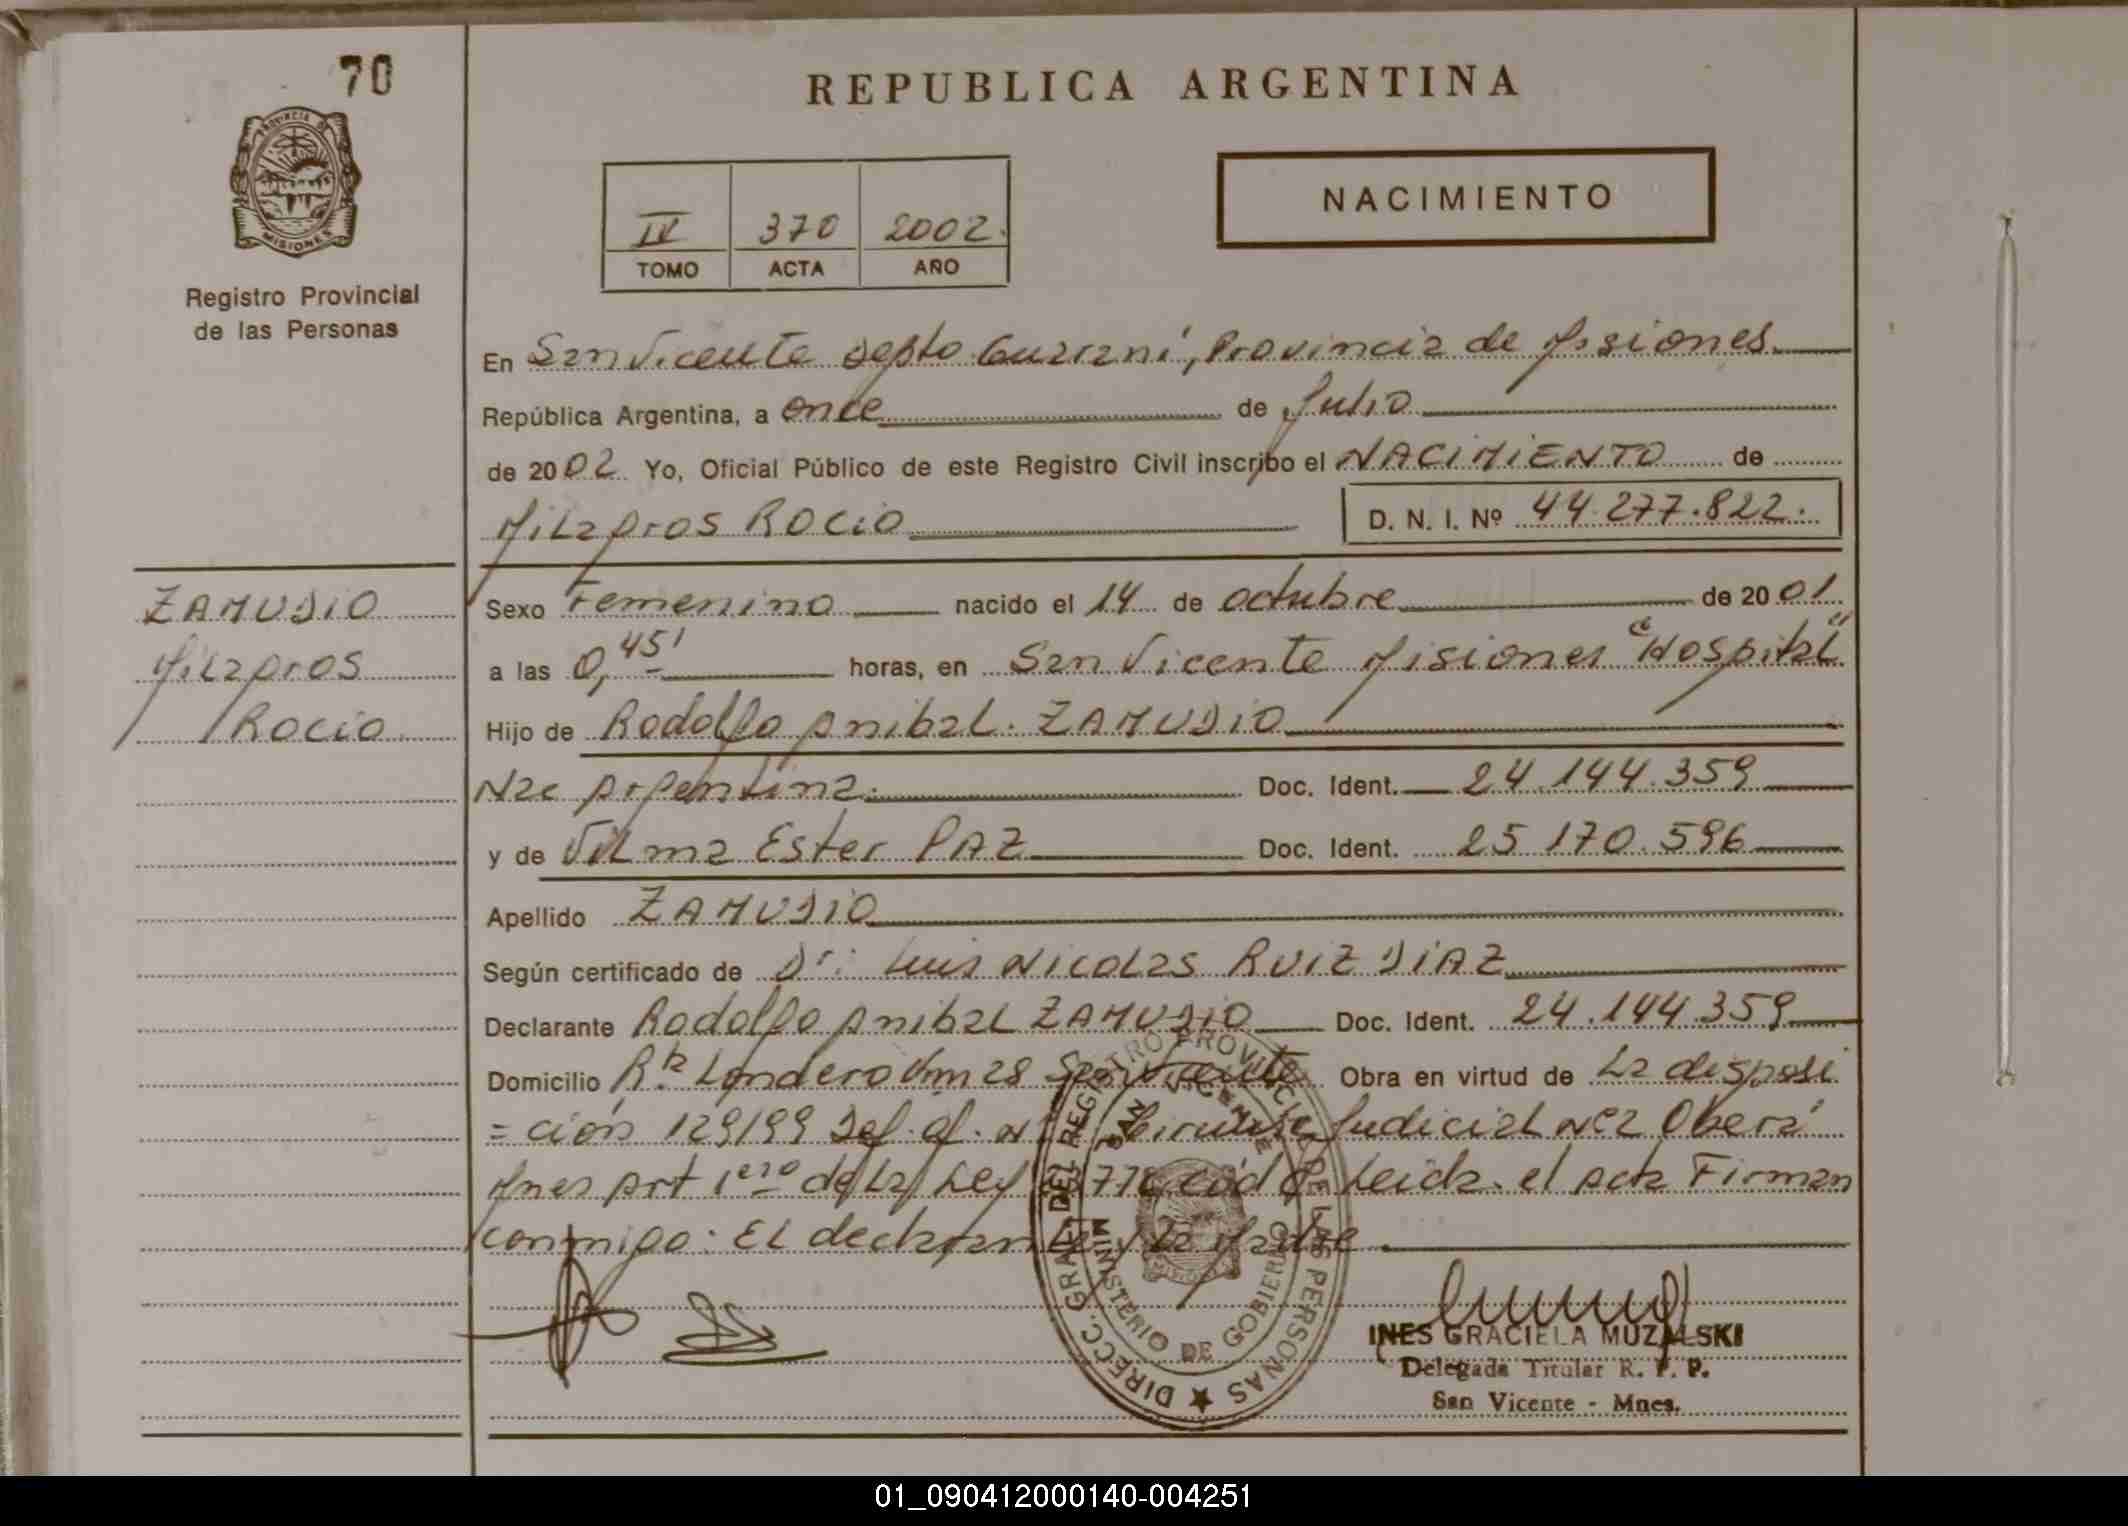 70
REPUBLICA ARGENTINA
PROVINCIA DE
MISIONES
Registro Provincial
de las Personas
NACIMIENTO
IV 370 2002.
TOMO ACTA AÑO
En San Vicente Depto Guarani, Provincia de Misiones.
República Argentina, a once de Julio
de 2002. Yo, Oficial Público de este Registro Civil inscribo el NACIMIENTO de
Milagros ROCIO
D. N. I. Nº 44.277.822.
ZAMUDIO
Milagros
Rocio
Sexo Femenino nacido el 14 de octubre de 2001
a las 0,45' horas, en San Vicente Misiones "Hospital"
Hijo de Rodolfo Anibal. ZAMUDIO
Nac Argentina. Doc. Ident. 24.144.359
y de Vilma Ester PAZ Doc. Ident. 25.170.596
Apellido ZAMUDIO
Según certificado de Dr: Luis Nicolas RUIZ DIAZ
Declarante Rodolfo Anibal ZAMUDIO Doc. Ident. 24.144.359
Domicilio Londero Km 28 San Vicente Obra en virtud de La disposi
=ción 129/99 Def. of. Judicial Oberá
Mnes Art 1ero de La Ley Leida el Acta Firman
conmigo: El declarante y La Madre
DIREC. GRAL. DEL REGISTRO PROVINCIAL DE LAS PERSONAS
SAN VICENTE
MINISTERIO DE GOBIERNO
MISIONES
INES GRACIELA MUZALSKI
Delegada Titular R. P. P.
San Vicente - Mnes.
01_090412000140-004251